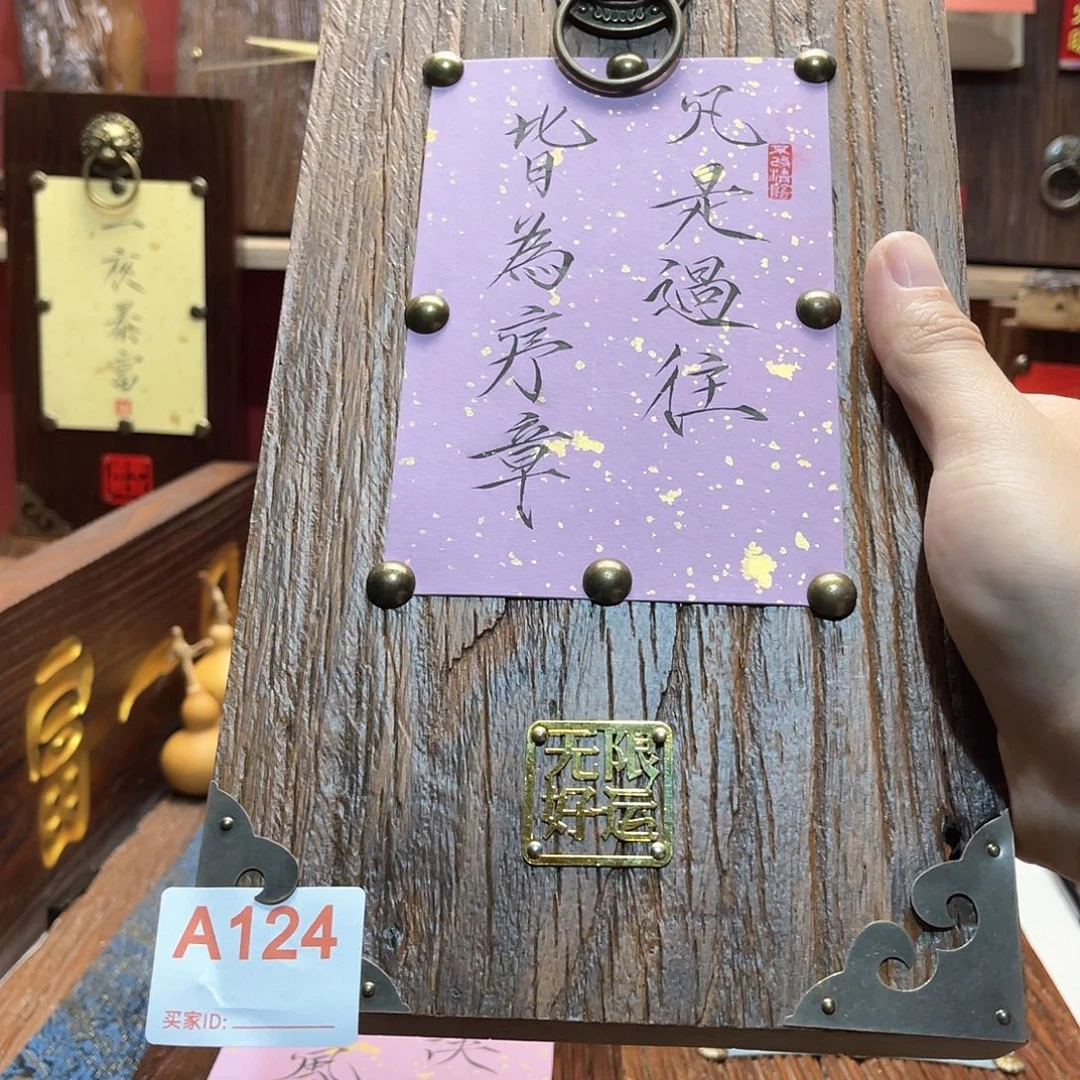 凡是過往
皆為序章
无限
好运
A124
买家ID:
一夜暴富